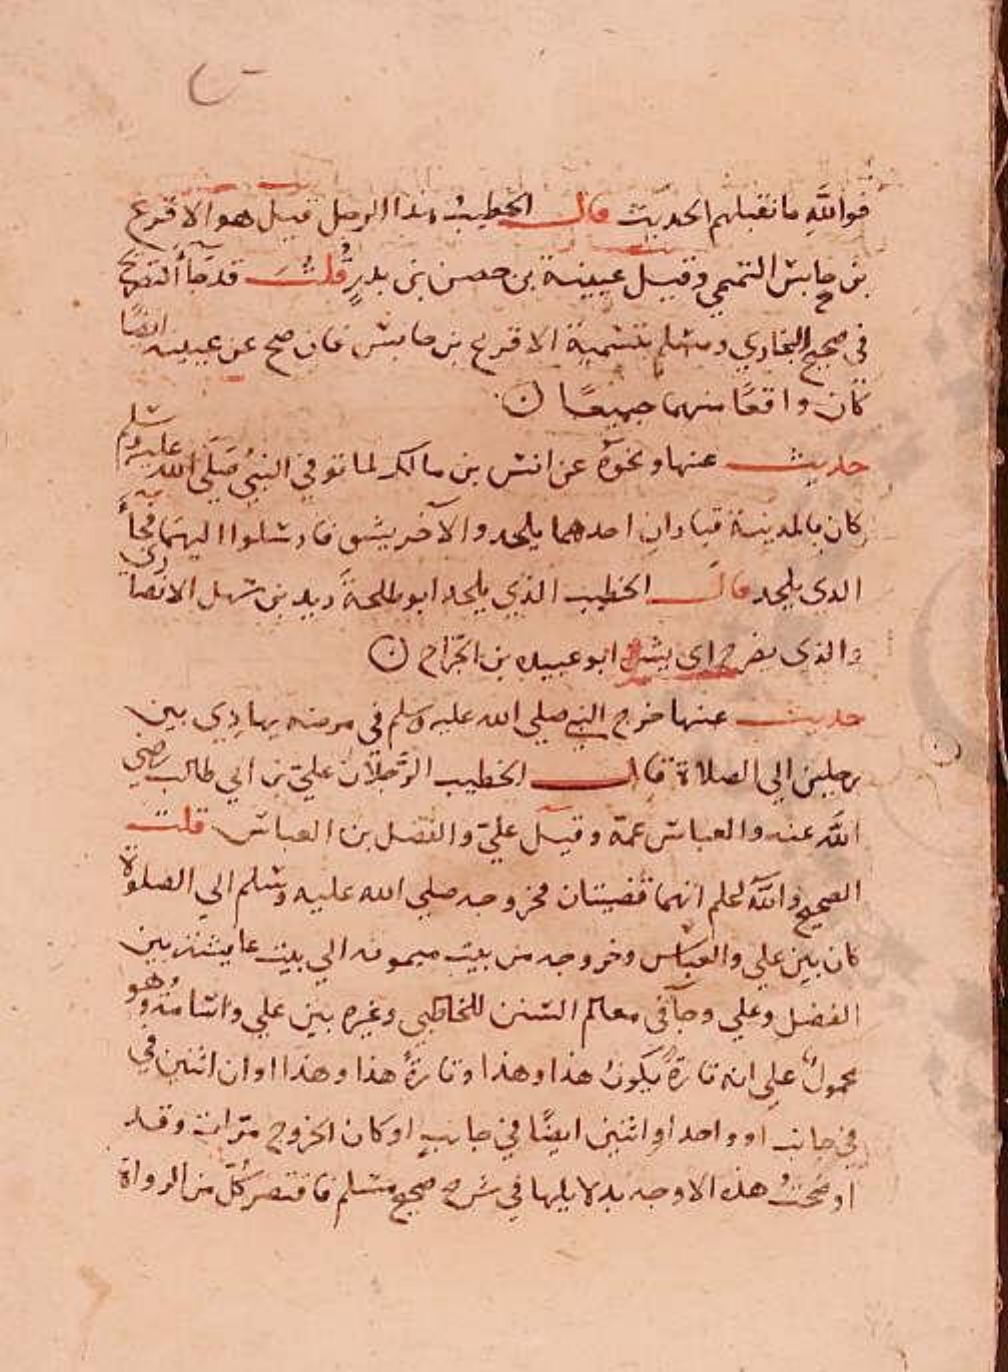 فوالله ما نقبلهم الحديث قال الخطيب هذا الرجل قيل هو الاقرع
بن حابس التميمي وقيل عيينة بن حصن بن بدر قلت قد جآ التصريح
في صحيح البخاري ومسلم بتسمية الاقرع بن حابس فان صح عن عيينه ايضًا
كان واقعًا منهما جميعًا ن
حديث عنها ونحوه عن انس بن مالك لما توفي النبي صلى الله عليه وسلم
كان بالمدينة قباران احدهما يلحد والآخر يشق فارسلوا اليهما فجآ
الذي يلحد قال الخطيب الذي يلحد ابو طلحة زيد بن سهل الانصاري
والذي يضرح اي يشق ابو عبيده بن الجراح ن
حديث عنها خرج النبي صلي الله عليه وسلم في مرضه يهادي بين
رجلين الي الصلاة قال الخطيب الرجلان علي بن ابي طالب رضي
الله عنه والعباس عمه وقيل علي والفضل بن العباس قلت
الصحيح والله اعلم انهما قضيتان فخروجه صلي الله عليه وسلم الي الصلوة
كان بين علي والعباس وخروجه من بيت ميمونه الي بيت عايشة بين
الفضل وعلي وجآ في معالم السنن للخطابي وغيره بين علي واسامة وهو
محمول علي انه تارة يكون هذا وهذا وتارة هذا وهذا او ان اثنين في
في جانب او واحد او اثنين ايضًا في جانب او كان الخروج مرات وقد
اوضحت هذه الاوجه بدلايلها في شرح صحيح مسلم فاقتصر كل من الرواة